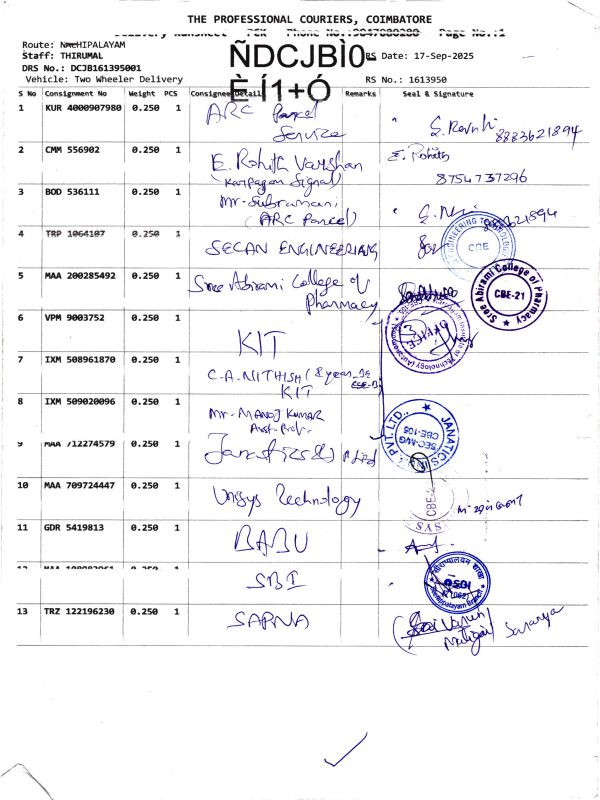 THE PROFESSIONAL COURIERS, COIMBATORE
Delivery Runsheet - PCK Phone No.:9847080280 Page No.:1
Route: NmcHIPALAYAM
Staff: THIRUMAL
DRS No.: DCJB161395001
Vehicle: Two Wheeler Delivery
ÑDCJBÌ0
È Í1+Ó
RS Date: 17-Sep-2025
RS No.: 1613950
S No Consignment No Weight PCS Consignee Details Remarks Seal & Signature
1 KUR 4000907980 0.250 1 ARC Parcel Service 8883621894
2 CMM 556902 0.250 1 E. Rohith Varshan (Karpagam Signal) E. Rohith 8754737296
3 BOD 536111 0.250 1 Mr. Subramani (ARC Parcel)
4 TRP 1064107 0.250 1 SECAN ENGINEERING CBE
5 MAA 200285492 0.250 1 Sree Abirami College of Pharmacy Sree Abirami College of Pharmacy CBE-21
6 VPM 9003752 0.250 1 KIT
7 IXM 508961870 0.250 1 C.A. NITHISH KIT
8 IXM 509020096 1 0.250 Mr. MANOJ KUMAR Asst. Prof.
9 MAA 712274579 0.250 1 JANATICS PVT. LTD.
10 MAA 709724447 0.250 1 Unisys Technology
11 GDR 5419813 0.250 1 BABU
SBI
13 TRZ 122196230 0.250 1 SAPNA Saranya